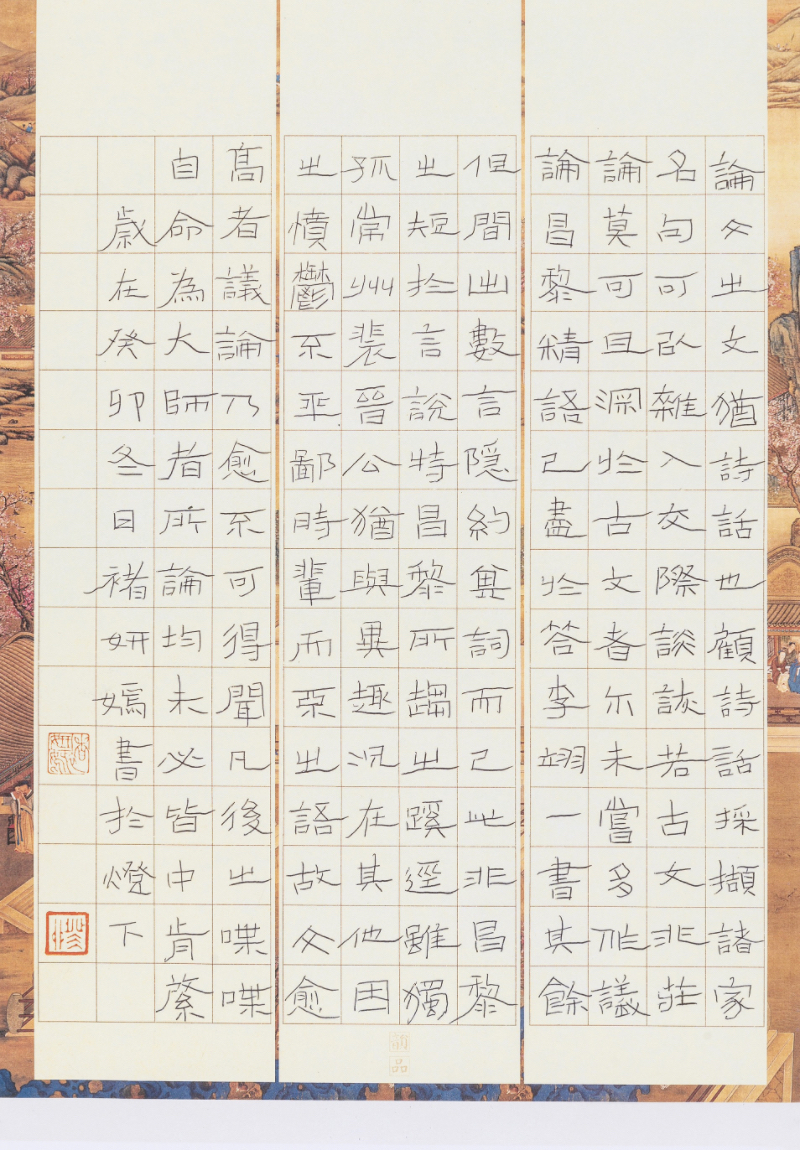 論文之文猶詩話也顧詩話採擷諸家
名句可臥雜入交際談詼若古文非莊
論莫可且深於古文者尓未嘗多作議
論昌黎精語已盡於答李翊一書其餘
但間出數言隱約其詞而已此非昌黎
之短於言說特昌黎所趨之蹊徑雖獨
孤常州裴晉公猶與異趣況在其他因
之憤鬱不平鄙時輩而惡之語故文愈
高者議論乃愈不可得聞凡後之喋喋
自命為大師者所論均未必皆中肯綮
歲在癸卯冬日褚妍嫣書於燈下